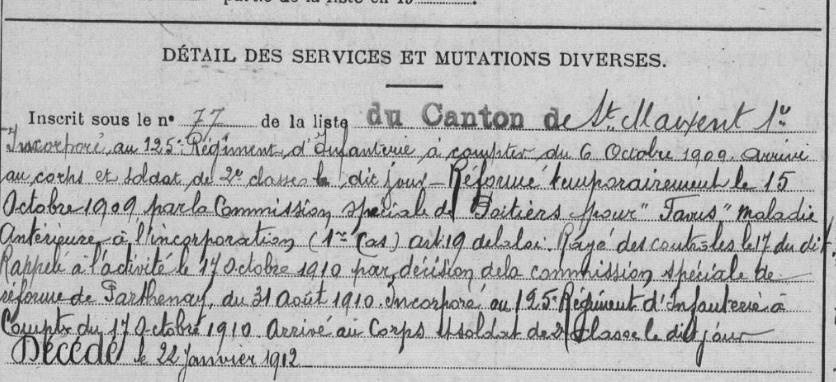 partie de la liste en 19
DÉTAIL DES SERVICES ET MUTATIONS DIVERSES.
Inscrit sous le n° 77 de la liste du Canton de St. Maixent 1re
Incorporé au 125e Régiment d'Infanterie à compter du 6 Octobre 1909. Arrivé
au corps et soldat de 2e classe le dit jour - Réformé temporairement le 15
Octobre 1909 par la Commission spéciale de Poitiers pour "Favus" maladie
antérieure à l'incorporation (1er Cas) art. 19 de la loi. Rayé des contrôles le 17 du dit.
Rappelé à l'activité le 17 Octobre 1910 par décision de la commission spéciale de
réforme de Parthenay, du 31 Août 1910. Incorporé au 125e Régiment d'Infanterie à
Compter du 17 Octobre 1910. Arrivé au Corps et soldat de 2e classe le dit jour
Décédé le 22 Janvier 1912